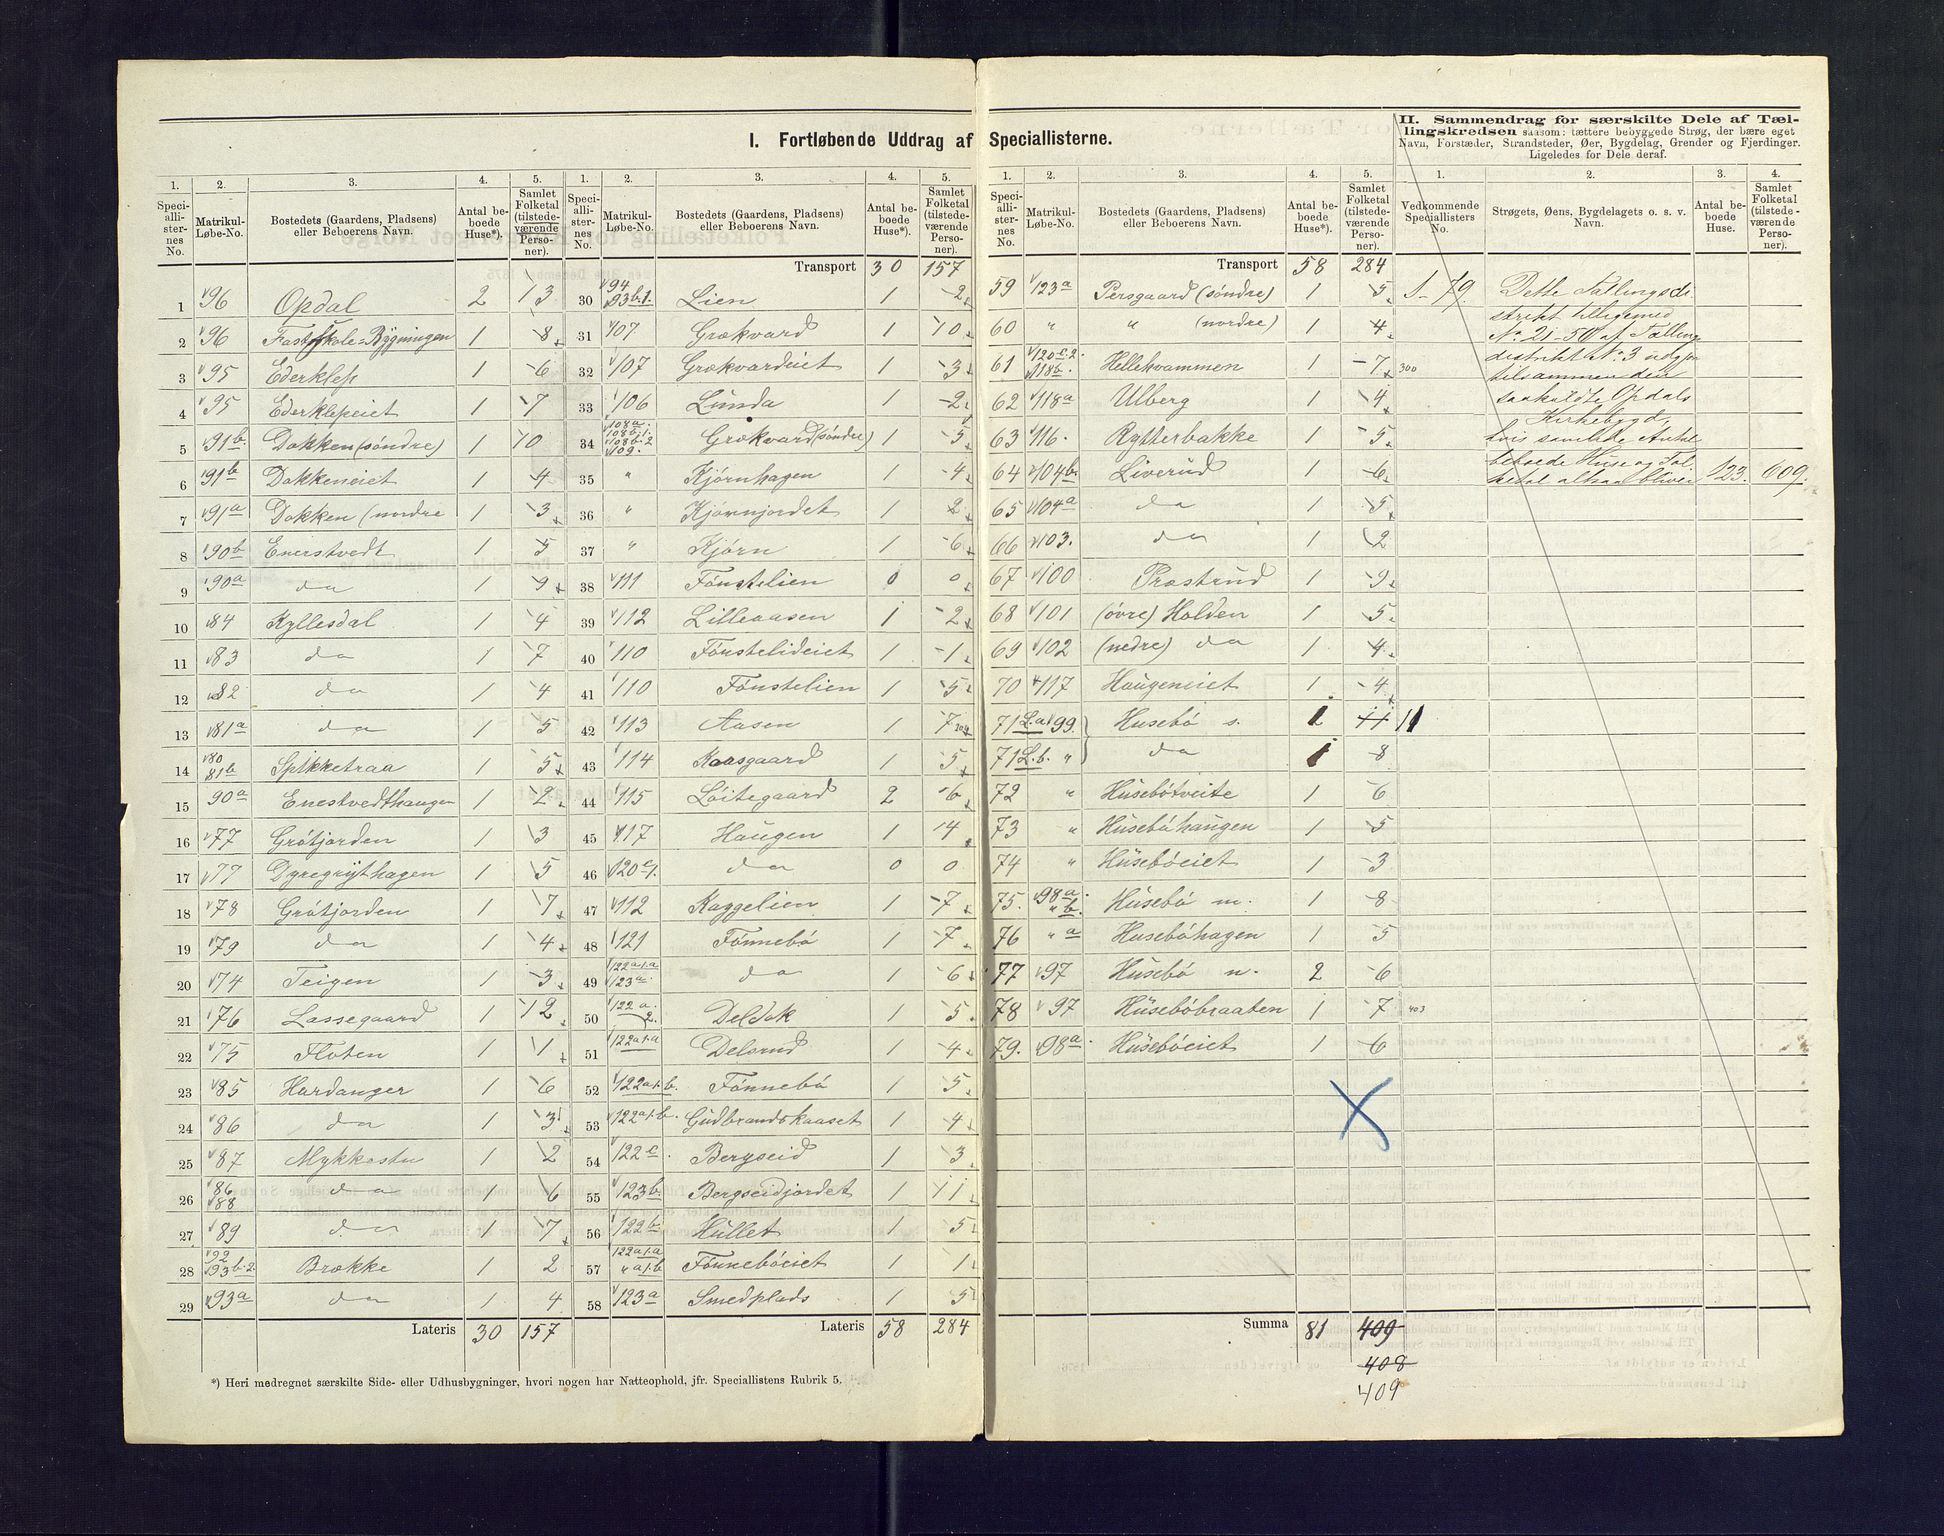 I. Fortløbende Uddrag af Speciallisterne.
II. Sammendrag for særskilte Dele af Tæl-
lingskredsen saasom: tættere bebyggede Strøg, der bære eget
Navn, Forstæder, Strandsteder, Øer, Bygdelag, Grender og Fjerdinger.
Ligeledes for Dele deraf.
1. 2. 3. 4. 5.
Speci-alli-ster-nes No. Matrikul-Løbe-No. Bostedets (Gaardens, Pladsens) eller Beboerens Navn. Antal be-boede Huse*). Samlet Folketal (tilstede-værende Perso-ner).
1 96 Opdal 2 13
2 96 Fastskole=Bygningen 1 8
3 95 Ederklep 1 6
4 95 Ederklepeiet 1 7
5 91b. Dokken (søndre) 1 10
6 91b Dokkeneiet 1 4
7 91a Dokken (nordre 1 3
8 90b Enerstvedt 1 5
9 90a da 1 9
10 84 Kyllesdal 1 4
11 83 da 1 7
12 82 da 1 4
13 81a da 1 5
14 80 81b Spikketraa 1 5
15 90a Enestvedthaugen 1 2
16 77 Grøtjorden 1 3
17 77 Dyregrythagen 1 5
18 78 Grøtjorden 1 7
19 79 da 1 4
20 74 Teigen 1 3
21 76 Lassegaard 1 12
22 75 Floten 1 1
23 85 Hardanger 1 6
24 86 da 1 3
25 87 Mykkestu 1 2
26 86 88 da 1 6
27 89 da 1 7
28 92 93b.2. Brække 1 2
29 93a da 1 4
Lateris 30 157
1. 2. 3. 4. 5.
Speci-alli-ster-nes No. Matrikul-Løbe-No. Bostedets (Gaardens, Pladsens) eller Beboerens Navn. Antal be-boede Huse*). Samlet Folketal (tilstede-værende Perso-ner).
Transport 30 157
30 94 93b.1. Lien 1 2
31 107 Grøkvard 1 10
32 107 Grøkvardeiet 1 3
33 106 Lunda 1 2
34 108a. 108b.1. 108b.2 109. Grøkvard (søndre) 1 5
35 " Kjørnhagen 1 4
36 " Kjørnjordet 1 2
37 " Kjørn 1 6
38 111 Fønstelien 0 0
39 112 Lilleaasen 1 2
40 110 Fønstelideiet 1 1
41 110 Fønstelien 1 5
42 113 Aasen 1 7
43 114 Kaasgaard 1 5
44 115 Løitegaard 2 6
45 117 Haugen 1 4
46 120c1. da 0 0
47 112 Kaggelien 1 7
48 121 Fønnebø 1 7
49 122a1.a 123a. da 1 6
50 122a. 2. Deldok 1 5
51 122a1.a Delsrud 1 4
52 122a1.b. Fønnebø 1 5
53 122a1.b. Gudbrandskaaset 1 4
54 122c. Bergseid 1 3
55 123b. Bergseidjordet 1 11
56 122b. Hullet 1 5
57 122a1.a " a1.b Fønnebøeiet 1 1
58 123a Smedplads 1 5
Lateris 58 284
1. 2. 3. 4. 5.
Speci-alli-ster-nes No. Matrikul-Løbe-No. Bostedets (Gaardens, Pladsens) eller Beboerens Navn. Antal be-boede Huse*). Samlet Folketal (tilstede-værende Perso-ner).
Transport 58 284
59 123a Persgaard (søndre) 1 5
60 " " (nordre) 1 4
61 120c.2. 118b. Hellekvammen 1 7 300
62 118a Ulberg 1 4
63 116. Rytterbakke 1 5
64 104b. Liverud 1 6
65 104a da 1 5
66 103. da 1 2
67 100 Præstrud 1 9
68 101 (øvre) Holden 1 5
69 102 (nedre) da 1 4
70 117 Haugeneiet 1 4
71 L.a 99 Husebø s. 1 11 11
71 L.b. " da 1 8
72 " Husebøtveite 1 6
73 " Husebøhaugen 1 5
74 " Husebøeiet 1 3
75. 98a. " b. Husebø m. 1 8
76 " a Husebøhagen 1 5
77 97 Husebø n. 2 6
78 97 Husebøbraaten 1 7 403
79. 98a. Husebøeiet 1 6
Summa 81 409
408
409
1. 2. 3. 4.
Vedkommende Speciallisters No. Strøgets, Øens, Bygdelagets o. s. v. Navn. Antal be-boede Huse. Samlet Folketal (tilstede-værende Perso-ner).
1-79. Dette Tællingsdi
strikt tilligemed
No 21-50 af Tællings
distrikt No 3 udgjør
tilsammen den
saakaldte Opdals
Kirkebygd,
hvis samlede Antal
beboede Huse og Fol
ketal altsaa bliver 123. 609.
*) Heri medregnet særskilte Side- eller Udhusbygninger, hvori nogen har Natteophold, jfr. Speciallistens Rubrik 5.